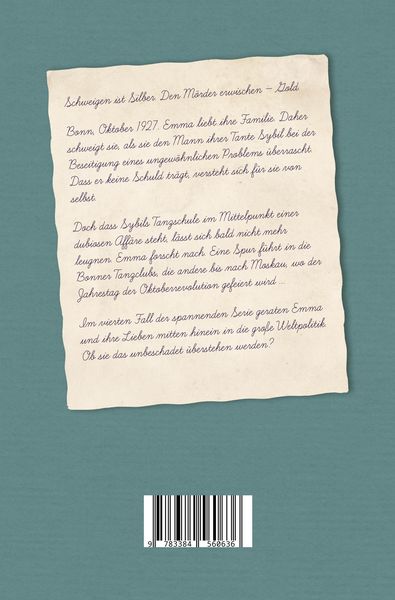 Schweigen ist Silber. Den Mörder erwischen – Gold
Bonn, Oktober 1927. Emma liebt ihre Familie. Daher
schweigt sie, als sie den Mann ihrer Tante Sybil bei der
Beseitigung eines ungewöhnlichen Problems überrascht.
Dass er keine Schuld trägt, versteht sich für sie von
selbst.
Doch dass Sybils Tanzschule im Mittelpunkt einer
dubiosen Affäre steht, lässt sich bald nicht mehr
leugnen. Emma forscht nach. Eine Spur führt in die
Bonner Tanzclubs, die andere bis nach Moskau, wo der
Jahrestag der Oktoberrevolution gefeiert wird ...
Im vierten Fall der spannenden Serie geraten Emma
und ihre Lieben mitten hinein in die große Weltpolitik.
Ob sie das unbeschadet überstehen werden?
9 783384 560636